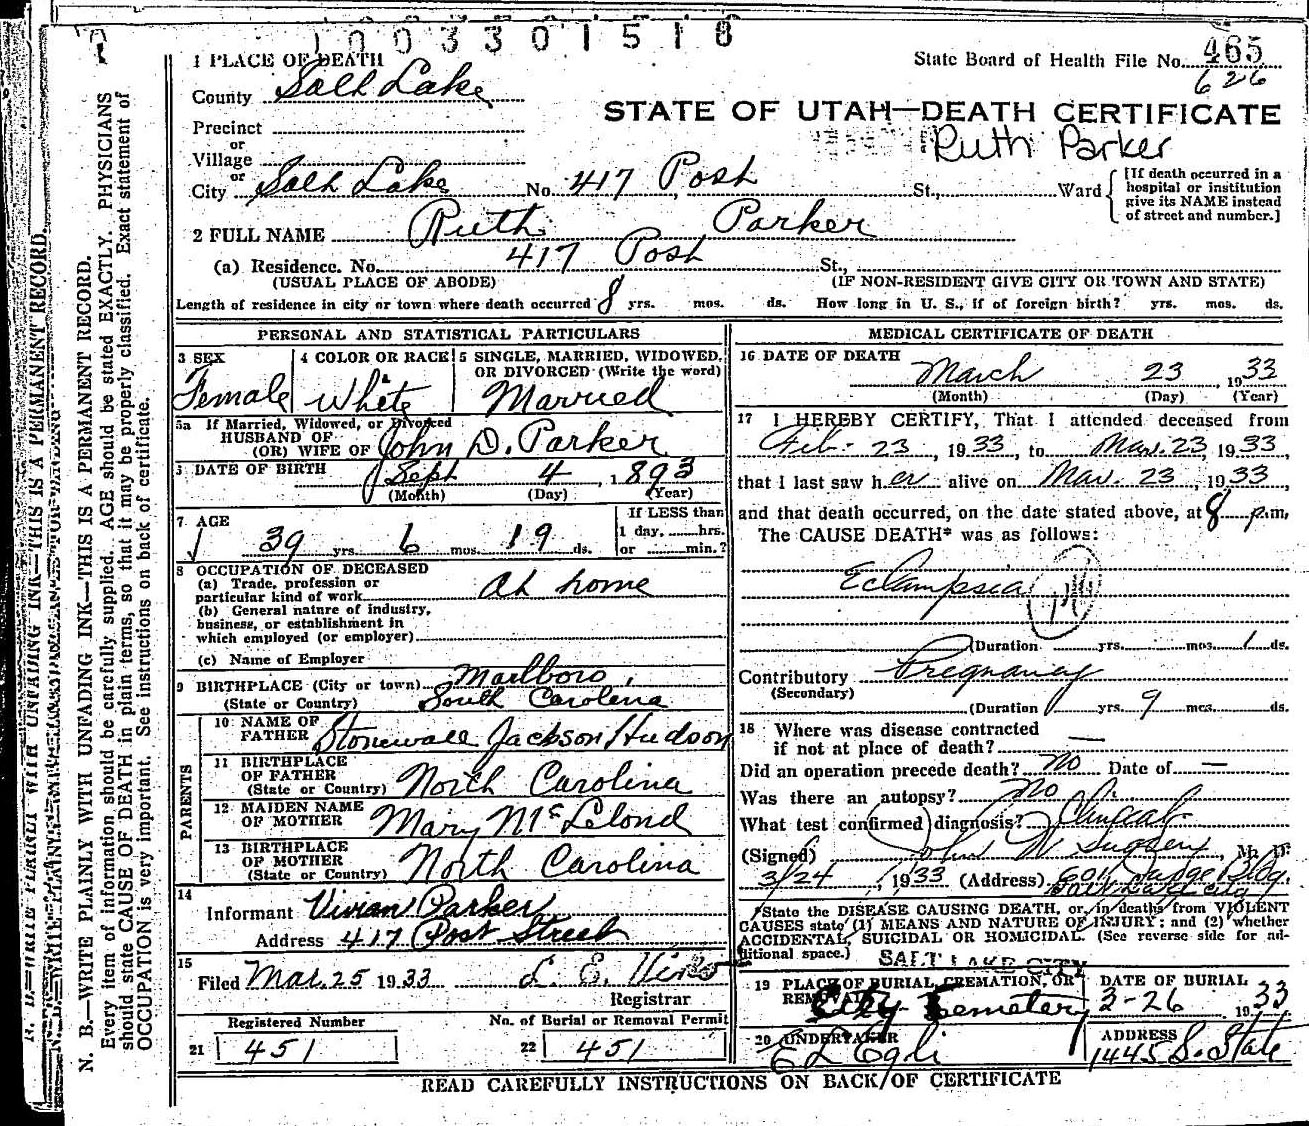 1 0 0 3 3 0 1 5 1 8
1 PLACE OF DEATH
State Board of Health File No. 465
626
County Salt Lake
STATE OF UTAH—DEATH CERTIFICATE
Precinct
Ruth Parker
or
Village
or
City Salt Lake No. 417 Post St., Ward
[If death occurred in a hospital or institution give its NAME instead of street and number.]
2 FULL NAME Ruth Parker
(a) Residence. No. 417 Post St.,
(USUAL PLACE OF ABODE) (IF NON-RESIDENT GIVE CITY OR TOWN AND STATE)
Length of residence in city or town where death occurred 8 yrs. mos. ds. How long in U. S., if of foreign birth? yrs. mos. ds.
PERSONAL AND STATISTICAL PARTICULARS
3 SEX
Female
4 COLOR OR RACE
White
5 SINGLE, MARRIED, WIDOWED,
OR DIVORCED (Write the word)
Married
5a If Married, Widowed, or Divorced
HUSBAND OF
(OR) WIFE OF John D. Parker
DATE OF BIRTH Sept 4, 1893
(Month) (Day) (Year)
7 AGE
39 yrs 6 mos 19 ds.
If LESS than
1 day, hrs.
or min.?
8 OCCUPATION OF DECEASED
(a) Trade, profession or
particular kind of work At home
(b) General nature of industry,
business, or establishment in
which employed (or employer)
(c) Name of Employer
9 BIRTHPLACE (City or town) Marlboro,
(State or Country) South Carolina
PARENTS
10 NAME OF
FATHER Stonewall Jackson Hudson
11 BIRTHPLACE
OF FATHER
(State or Country) North Carolina
12 MAIDEN NAME
OF MOTHER Mary McLelond
13 BIRTHPLACE
OF MOTHER
(State or Country) North Carolina
14
Informant Vivian Parker
Address 417 Post Street
15
Filed Mar. 25 1933 L. E.
Registrar
Registered Number
21 451
No. of Burial or Removal Permit
22 451
MEDICAL CERTIFICATE OF DEATH
16 DATE OF DEATH
March 23, 1933
(Month) (Day) (Year)
17 I HEREBY CERTIFY, That I attended deceased from
Feb. 23, 1933, to Mar. 23, 1933,
that I last saw her alive on Mar. 23, 1933,
and that death occurred, on the date stated above, at 8 p.m.
The CAUSE DEATH* was as follows:
Eclampsia
(Duration yrs. mos. 1 ds.
Contributory Pregnancy
(Secondary)
(Duration yrs. 9 mos. ds.
18 Where was disease contracted
if not at place of death? —
Did an operation precede death? no Date of —
Was there an autopsy? no
What test confirmed diagnosis? Clinical
(Signed) John M. , M. D.
3/24, 1933 (Address) 604 Judge Bldg.
Salt Lake City
*State the DISEASE CAUSING DEATH, or, in deaths from VIOLENT
CAUSES state (1) MEANS AND NATURE OF INJURY; and (2) whether
ACCIDENTAL, SUICIDAL OR HOMICIDAL. (See reverse side for ad-
ditional space.)
SALT LAKE CITY
19 PLACE OF BURIAL, CREMATION, OR
REMOVAL
City Cemetery
DATE OF BURIAL
3-26 1933
20 UNDERTAKER
E L Egli
ADDRESS
1445 S. State
READ CAREFULLY INSTRUCTIONS ON BACK OF CERTIFICATE
N. B.—WRITE PLAINLY WITH UNFADING INK—THIS IS A PERMANENT RECORD.
Every item of information should be carefully supplied. AGE should be stated EXACTLY. PHYSICIANS
should state CAUSE OF DEATH in plain terms, so that it may be properly classified. Exact statement of
OCCUPATION is very important. See instructions on back of certificate.